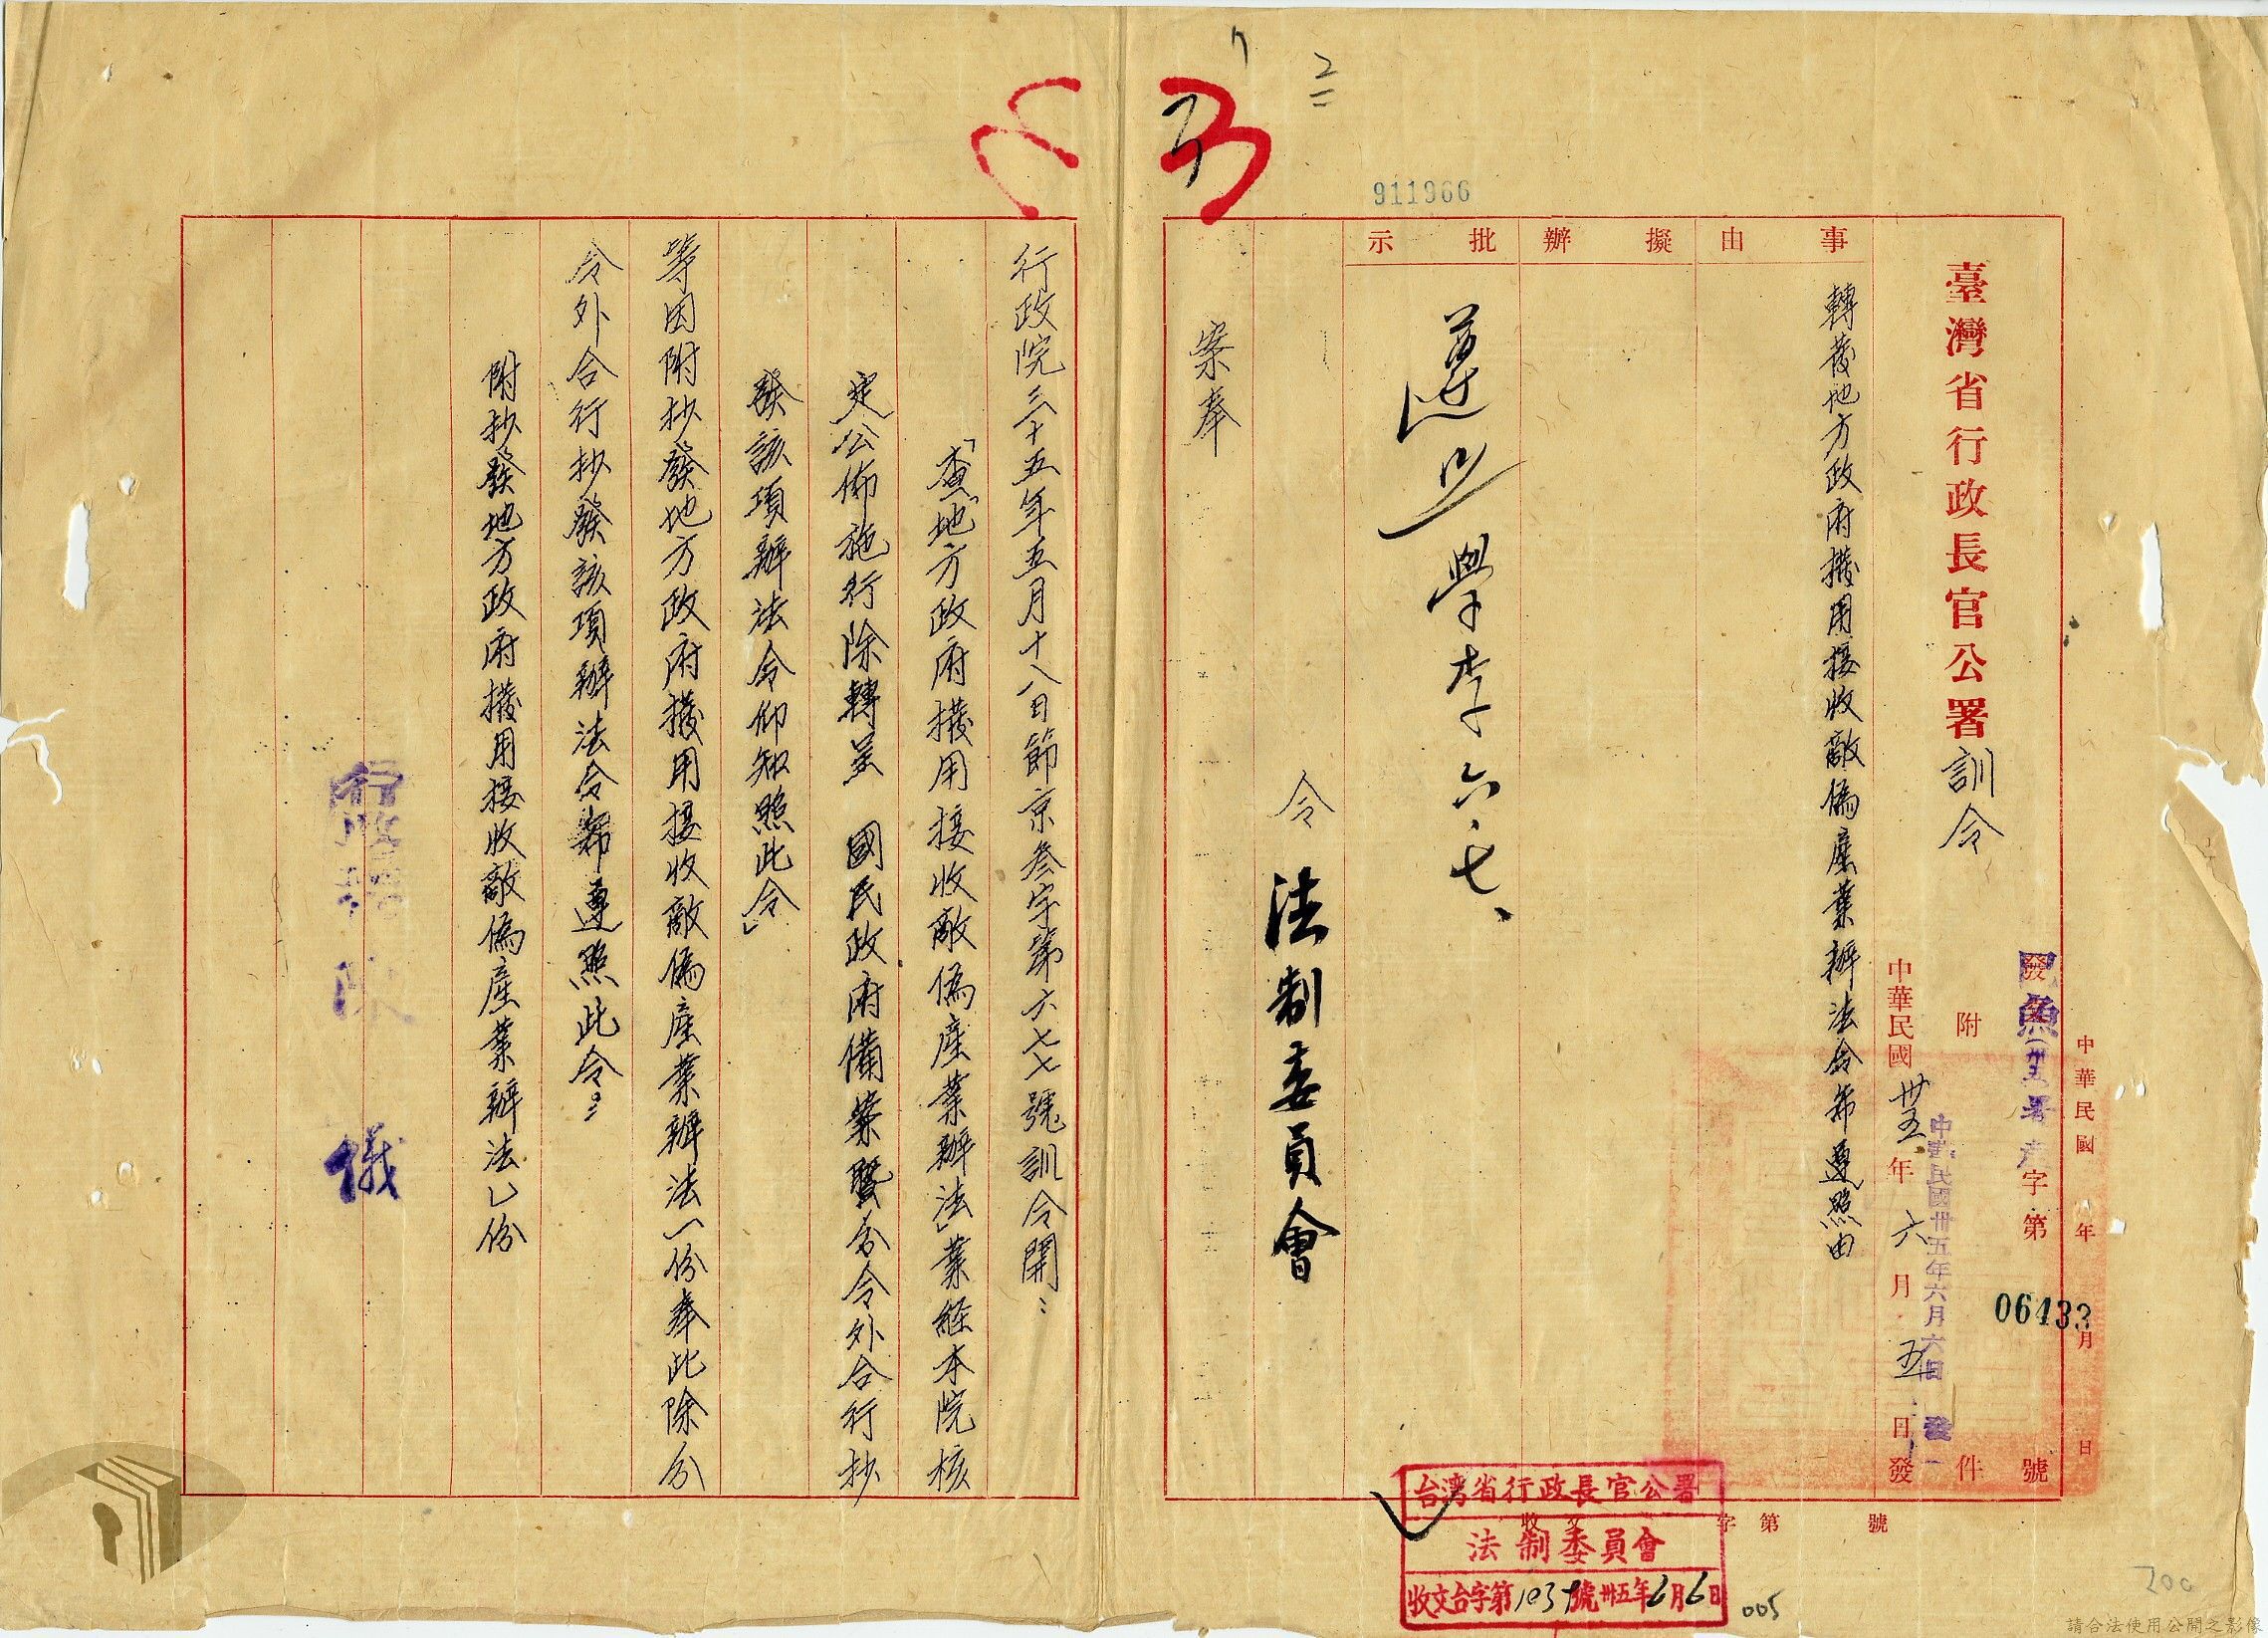 911966
臺灣省行政長官公署訓令
中華民國 年 月 日
發 (卅五)署產字第 06433 號
附 件
中華民國卅五年六月六日 發
中華民國卅五年六月五日發
事由
轉發地方政府撥用接收敵偽產業辦法令希遵照由
擬辦
批示
遵照
學李 六.七、
令 法制委員會
案奉
行政院三十五年五月十八日節京叁字第六七七號訓令開：
「查「地方政府撥用接收敵偽產業辦法」業經本院核
定公佈施行除轉呈 國民政府備案暨分令外合行抄
發該項辦法令仰知照此令」
等因附抄發地方政府撥用接收敵偽產業辦法一份奉此除分
令外合行抄發該項辦法令希遵照此令
附抄發地方政府撥用接收敵偽產業辦法乙份
行政長官 陳 儀
收文 字第 號
台灣省行政長官公署
法制委員會
收文台字第 號卅五年6月6日
005
200
請合法使用公開之影像